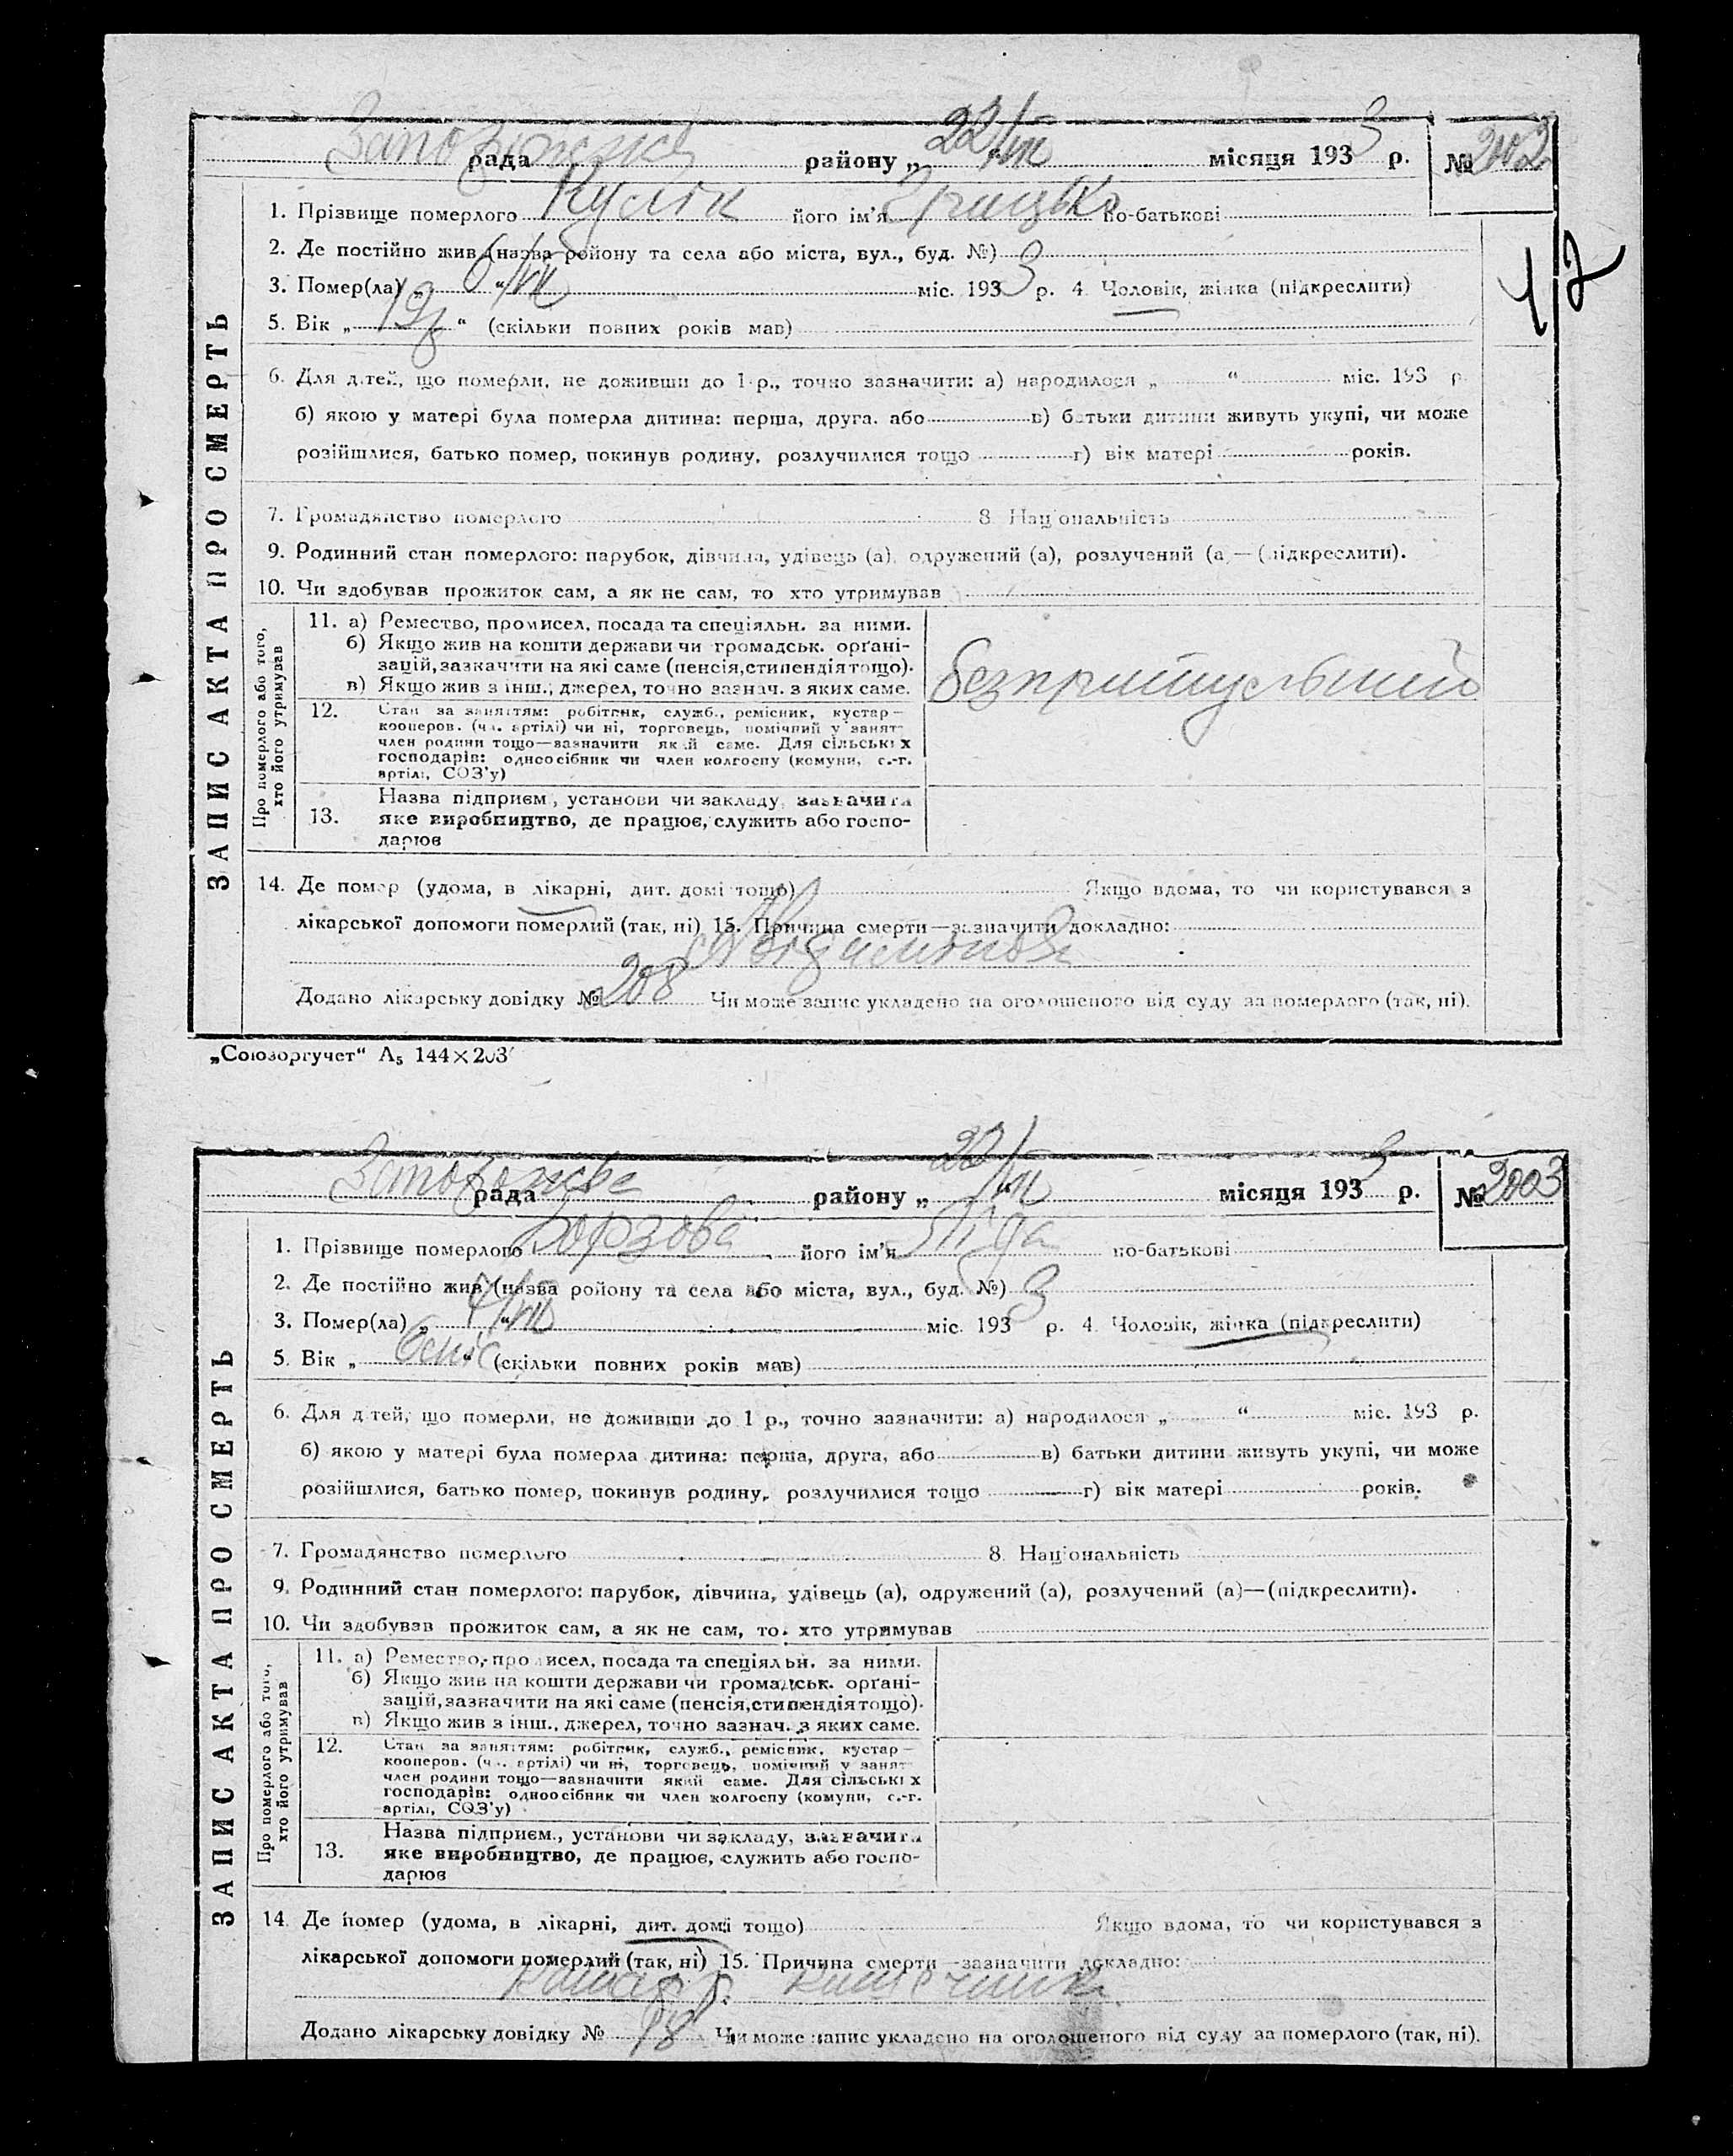 рада району „22/VII“ місяця 1933 р. № 2002
1. Прізвище померлого Кулік його ім'я Грицько по-батькові
2. Де постійно жив (назва ройону та села або міста, вул., буд. №)
3. Помер(ла) „6/VII“ міс. 1933 р. 4 Чоловік, жінка (підкреслити)
5. Вік „ “ (скільки повних років мав)
6. Для дітей, що померли, не доживши до 1 р., точно зазначити: а) народилося „ “ міс. 193 р.
б) якою у матері була померла дитина: перша, друга. або в) батьки дитини живуть укупі, чи може
розійшлися, батько помер, покинув родину, розлучилися тощо г) вік матері років.
7. Громадянство померлого 8. Національність
9. Родинний стан померлого: парубок, дівчина, удівець (а), одружений (а), розлучений (а)—(підкреслити).
10. Чи здобував прожиток сам, а як не сам, то хто утримував
11. а) Ремество, промисел, посада та спеціяльн. за ними.
б) Якщо жив на кошти держави чи громадськ. орґані-
зацій, зазначити на які саме (пенсія, стипендія тощо).
в) Якщо жив з інш., джерел, точно зазнач. з яких саме.
безпритульний
12. Стан за заняттям: робітник, служб., ремісник, кустар—
кооперов. (чл. артілі) чи ні, торговець, помічний у занят-
член родини тощо—зазначити який саме. Для сільських
господарів: одноосібник чи член колгоспу (комуни, с.-г.
артілі, СОЗ'у)
13. Назва підприєм., установи чи закладу, зазначити
яке виробництво, де працює, служить або госпо-
дарює
14. Де помер (удома, в лікарні, дит. домі тощо) Якщо вдома, то чи користувався з
лікарської допомоги померлий (так, ні) 15. Причина смерти—зазначити докладно:
Додано лікарську довідку № 208 Чи може запис укладено на оголошеного від суду за померлого (так, ні).
ЗАПИС АКТА ПРО СМЕРТЬ
Про померлого або того,
хто його утримував
„Союзоргучет“ А₅ 144×203
рада району „22/VII“ місяця 1933 р. № 2003
1. Прізвище померлого Борзова його ім'я Ліда по-батькові
2. Де постійно жив (назва ройону та села або міста, вул., буд. №)
3. Помер(ла) „ /VII“ міс. 1933 р. 4 Чоловік, жінка (підкреслити)
5. Вік „ “ (скільки повних років мав)
6. Для дітей, що померли, не доживши до 1 р., точно зазначити: а) народилося „ “ міс. 193 р.
б) якою у матері була померла дитина: перша, друга, або в) батьки дитини живуть укупі, чи може
розійшлися, батько помер, покинув родину, розлучилися тощо г) вік матері років.
7. Громадянство померлого 8. Національність
9. Родинний стан померлого: парубок, дівчина, удівець (а), одружений (а), розлучений (а)—(підкреслити).
10. Чи здобував прожиток сам, а як не сам, то хто утримував
11. а) Ремество, промисел, посада та спеціяльн. за ними.
б) Якщо жив на кошти держави чи громадськ. орґані-
зацій, зазначити на які саме (пенсія, стипендія тощо).
в) Якщо жив з інш., джерел, точно зазнач. з яких саме.
12. Стан за заняттям: робітник, служб., ремісник, кустар—
кооперов. (чл. артілі) чи ні, торговець, помічний у занят-
член родини тощо—зазначити який саме. Для сільських
господарів: одноосібник чи член колгоспу (комуни, с.-г.
артілі, СОЗ'у)
13. Назва підприєм., установи чи закладу, зазначити
яке виробництво, де працює, служить або госпо-
дарює
14. Де помер (удома, в лікарні, дит. домі тощо) Якщо вдома, то чи користувався з
лікарської допомоги померлий (так, ні) 15. Причина смерти—зазначити докладно:
Додано лікарську довідку № 98 Чи може запис укладено на оголошеного від суду за померлого (так, ні).
ЗАПИС АКТА ПРО СМЕРТЬ
Про померлого або того,
хто його утримував